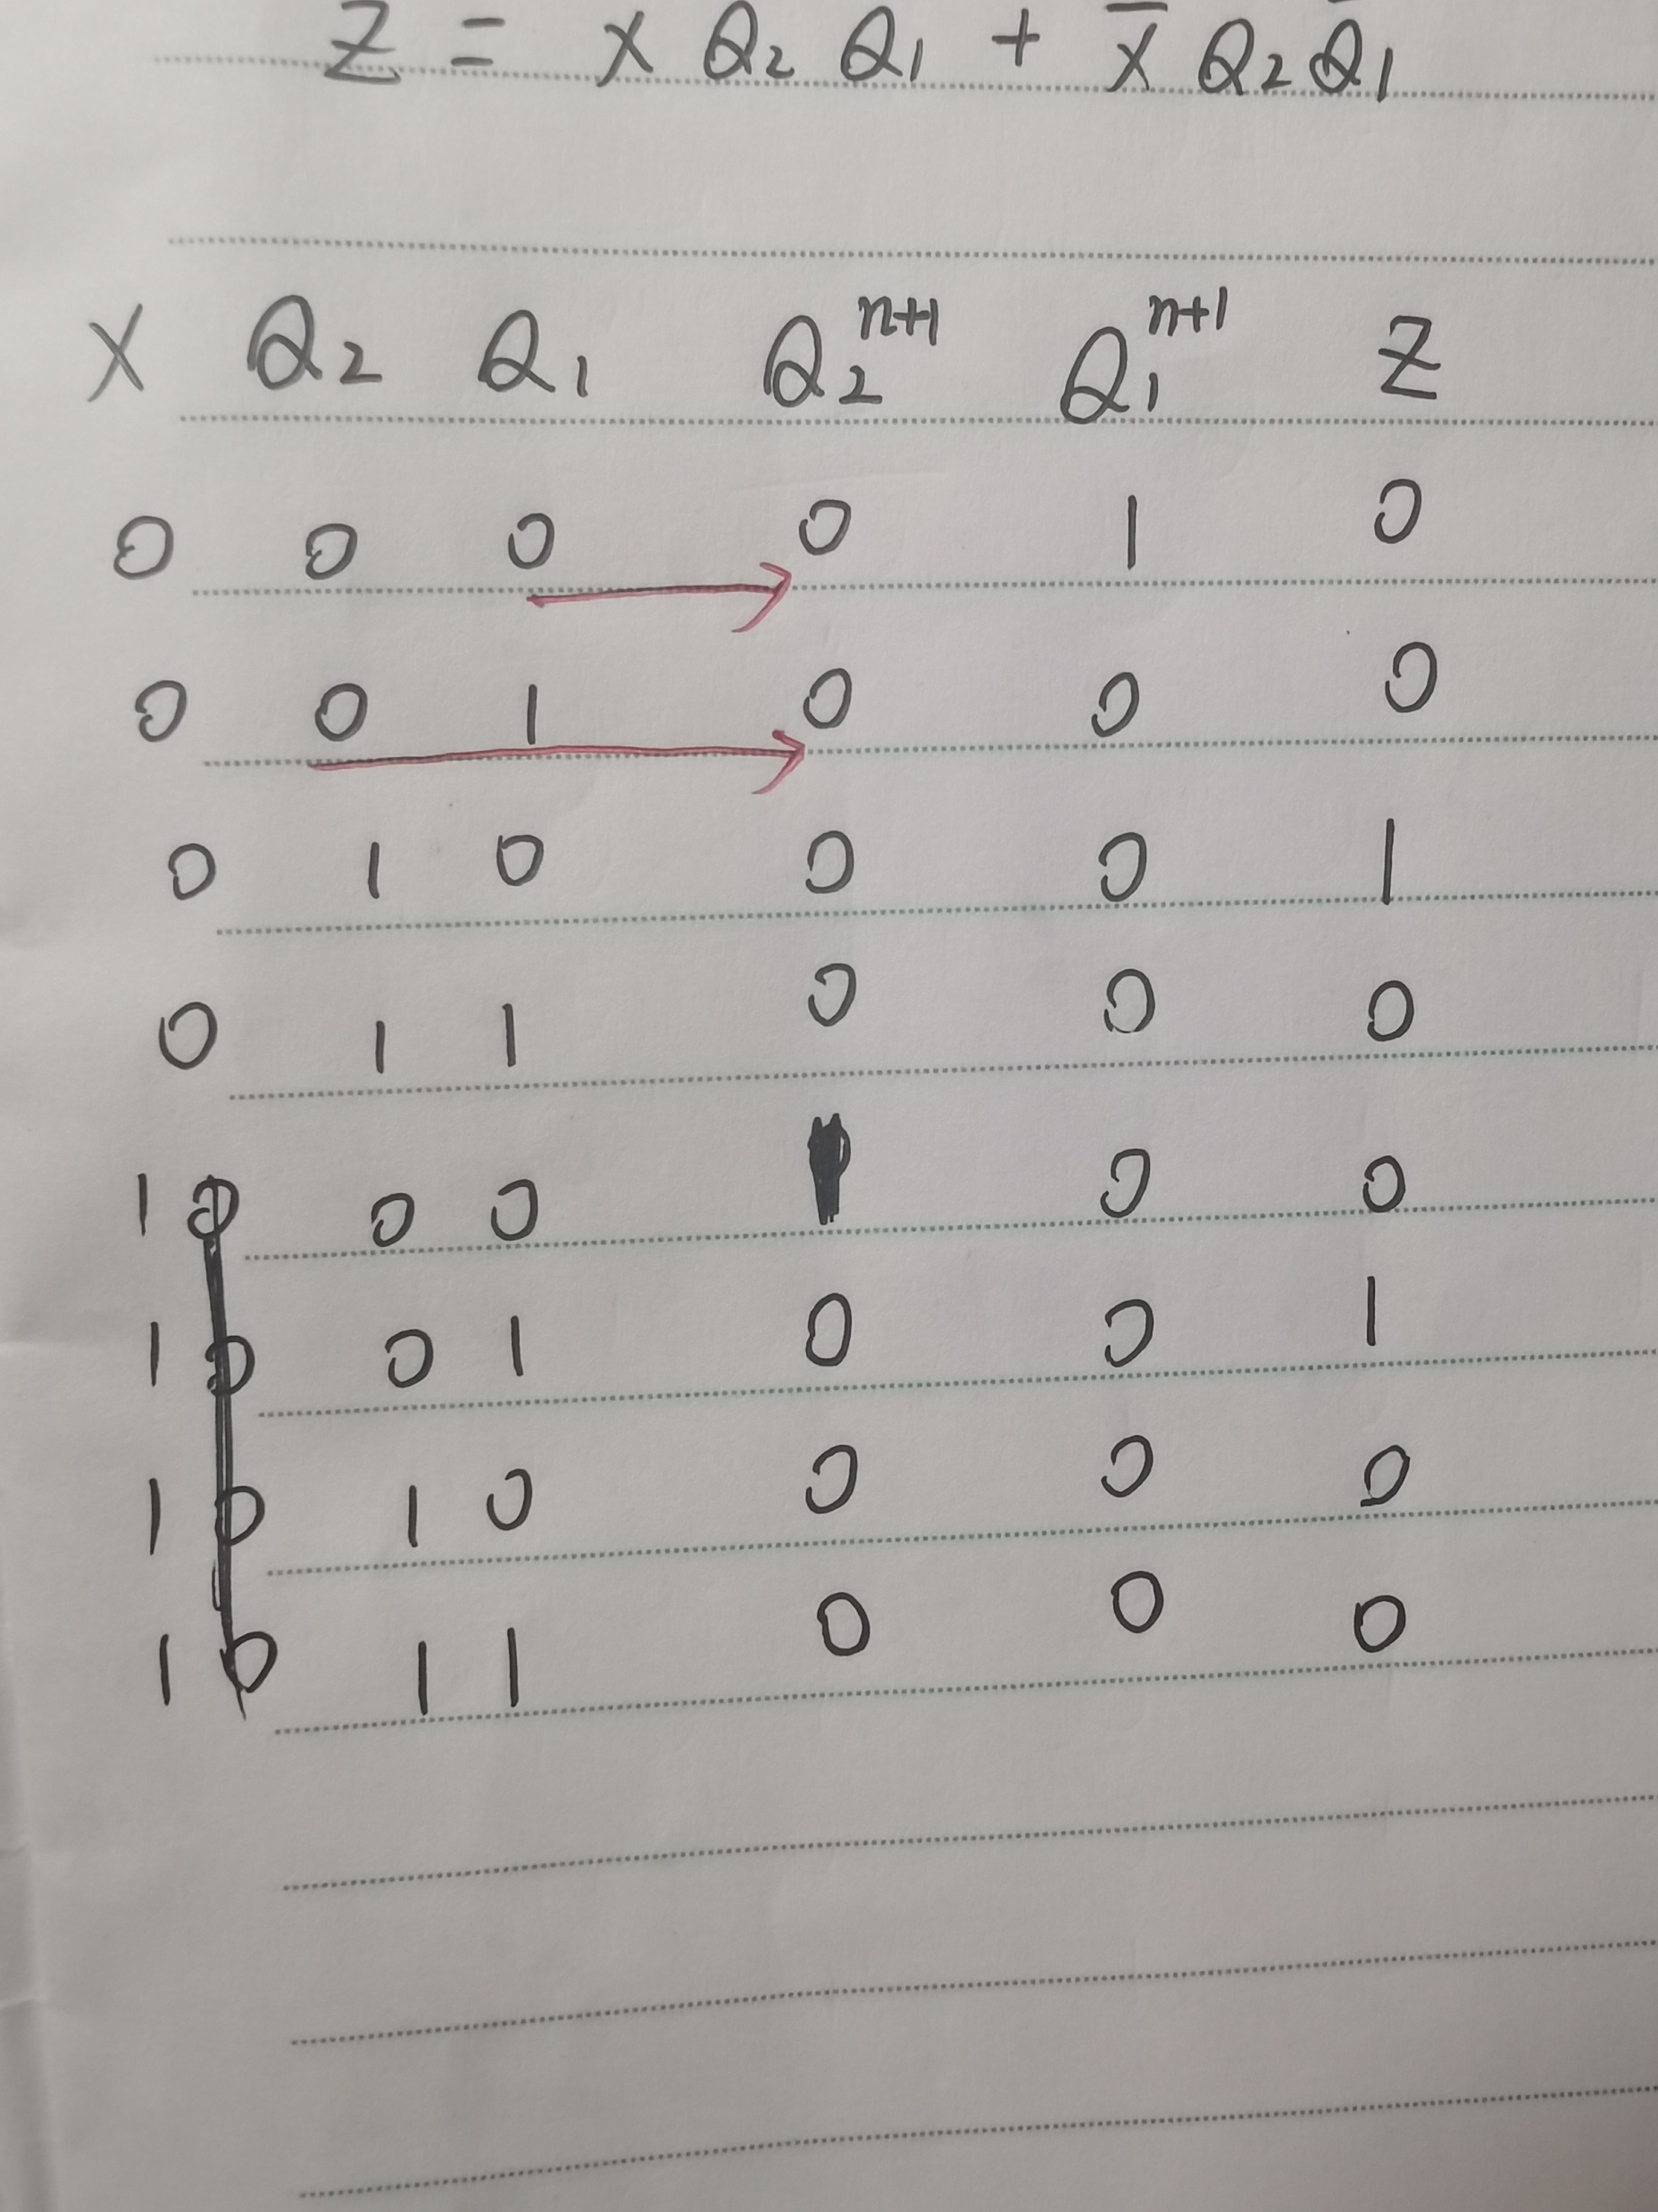 Z = X Q₂ Q₁ + X̅ Q₂ Q̅₁
X Q₂ Q₁ Q₂ⁿ⁺¹ Q₁ⁿ⁺¹ Z
0 0 0 → 0 1 0
0 0 1 → 0 0 0
0 1 0 0 0 1
0 1 1 0 0 0
1 0 0 1 0 0
1 0 1 0 0 1
1 1 0 0 0 0
1 1 1 0 0 0